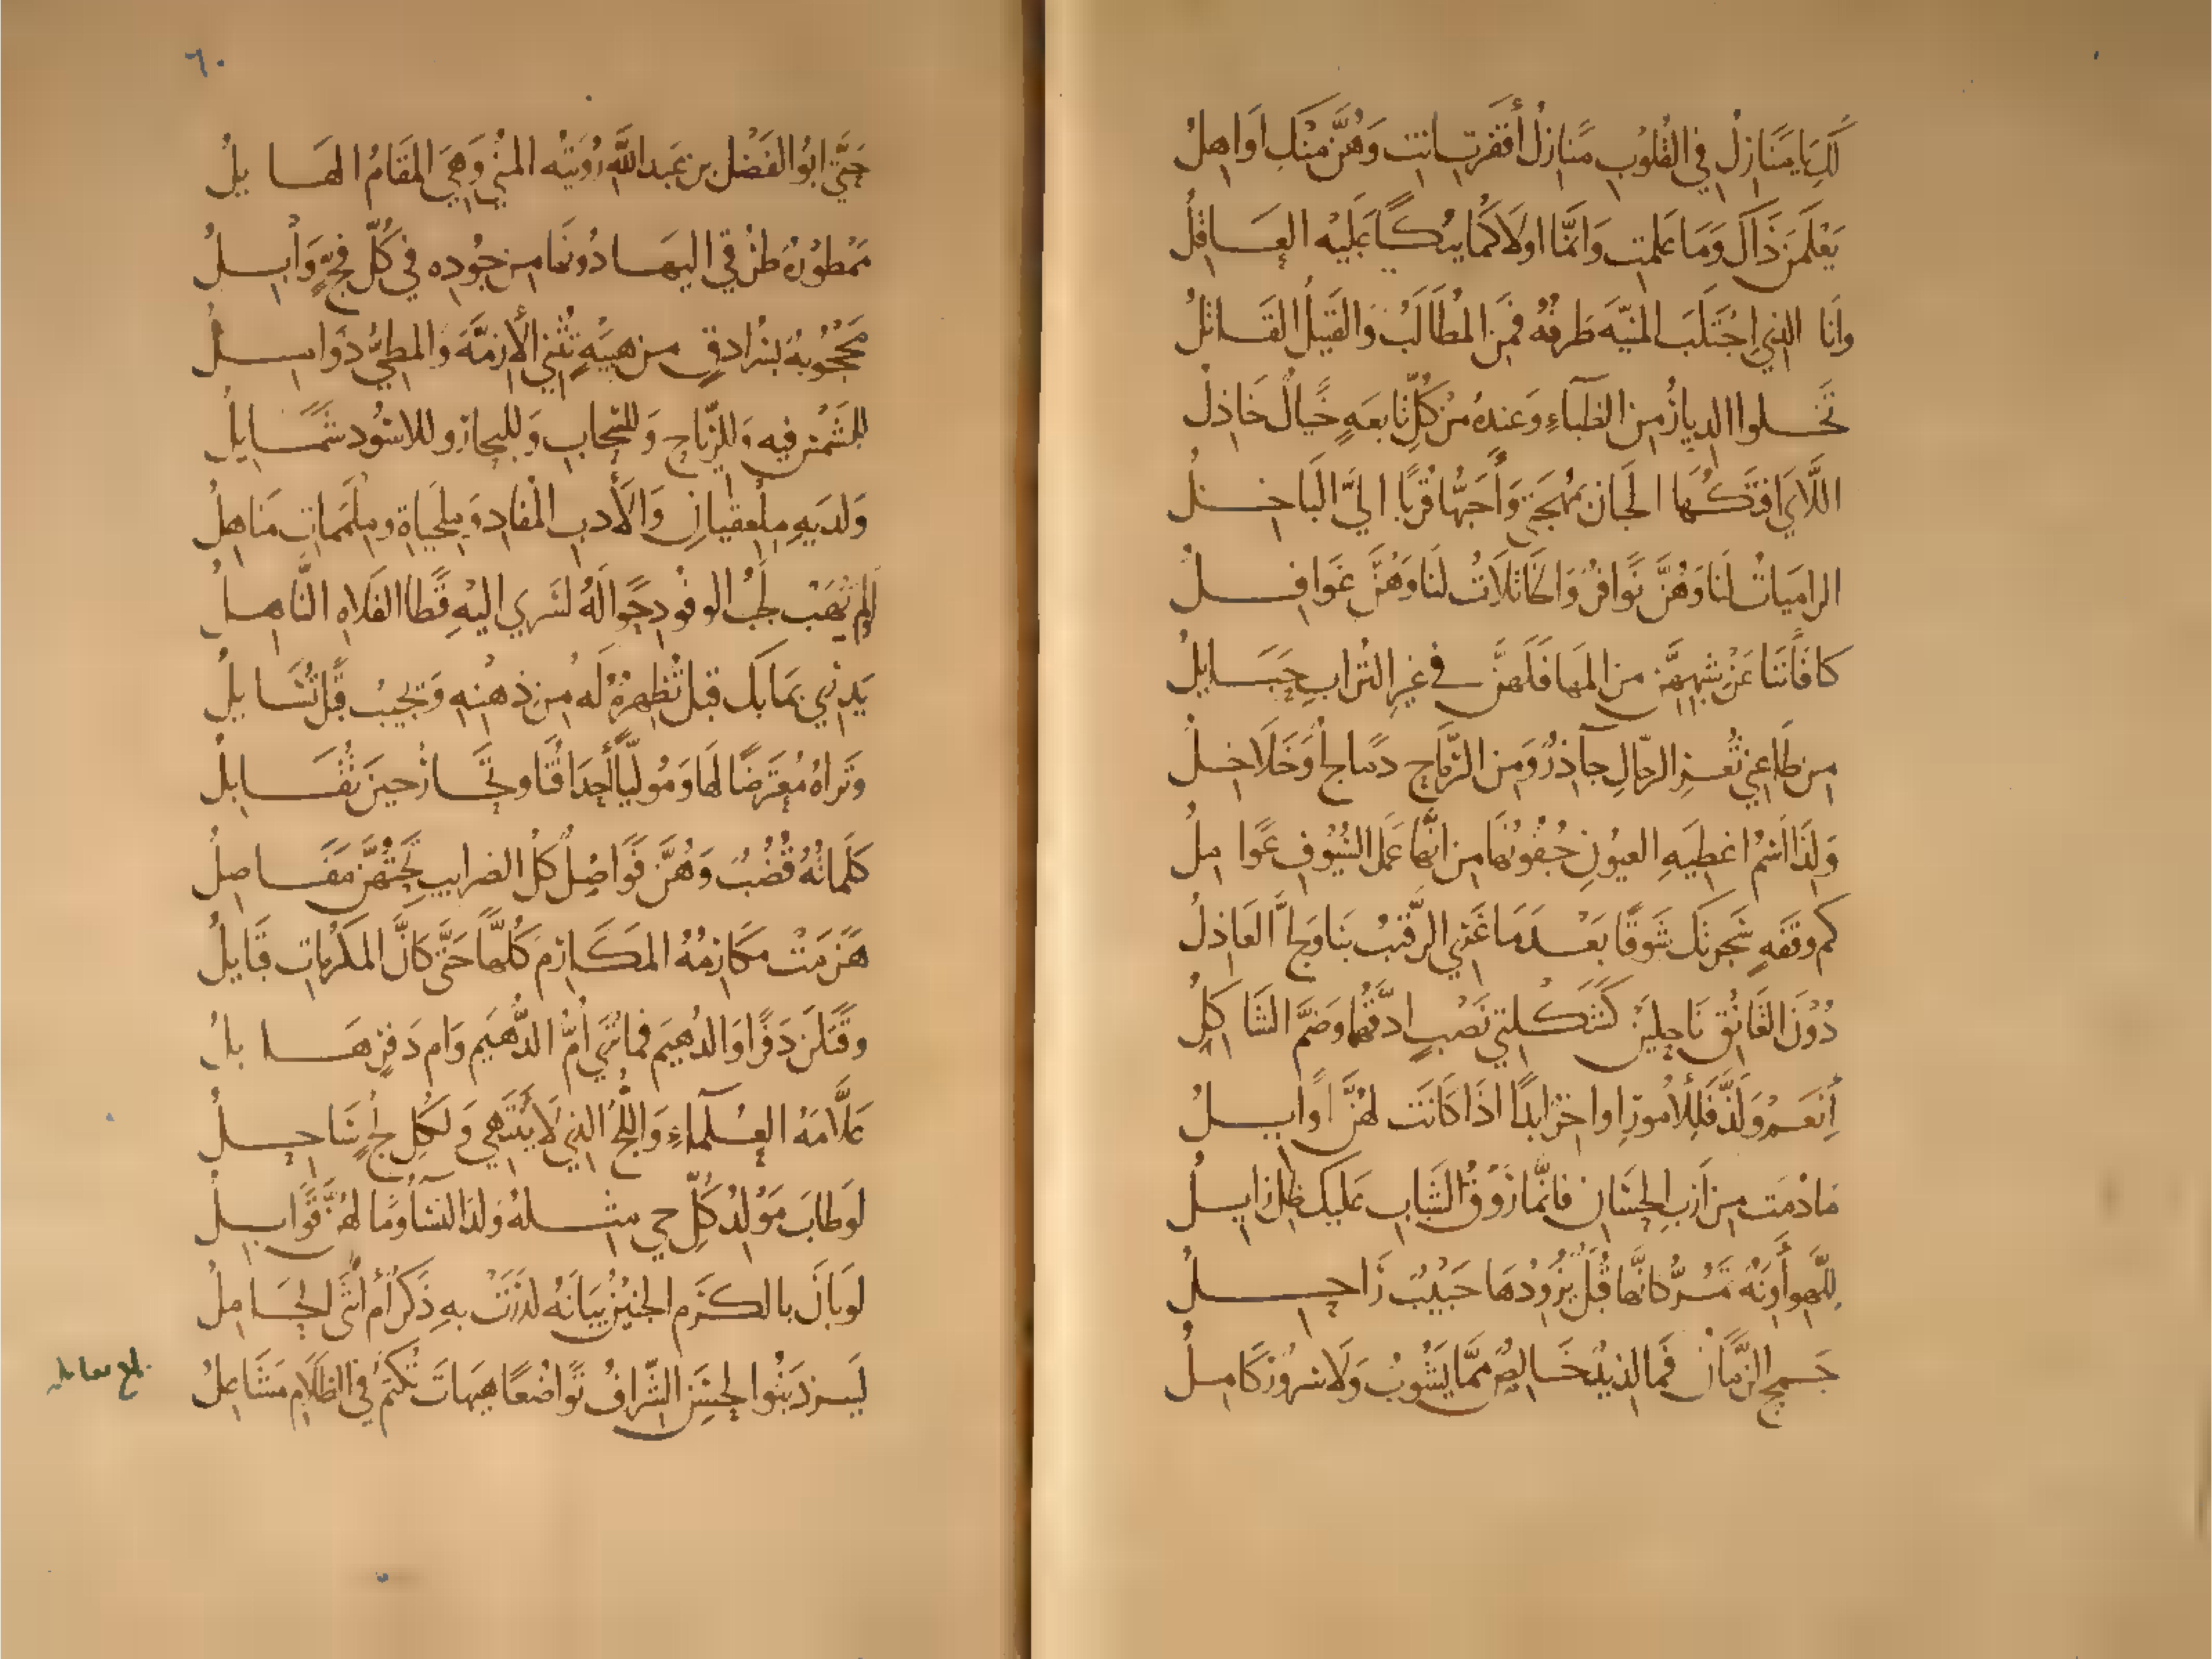 لَكِ يَا مَنَازِلُ فِي القُلُوبِ مَنَازِلُ أَقْفَرتِ انتِ وَهُنَّ مِنْكِ اَوَاهِلُ
يَعْلَمنَ ذَاكَ وَمَا عَلمتِ وَانمَّا اولَاكُمَا يُبْكَا عَلَيْهِ العَاقِلُ
وانَا الذِي اِجْتَلَبَ المَنيَّةَ طَرفُهُ فمَنِ المُطَالَبُ وَالقَتيلُ القَاتلُ
تَخلوا الدِيارُ مِنَ الظبَآءِ وَعِندهُ مِنْ كُلِّ تابعَةٍ خَيالٌ خَاذِلُ
اللَّايَ افتَكُهَا الجَبَان بمُهجَتِي وَأَحَبُّهَا قُربًا اليَّ البَاخِلُ
الرامِيَاتُ لنَا وَهُنَّ نَوافرٌ وَالخَاتلَاتُ لنَا وَهُنَّ غَوافِلُ
كافأنَنَا عَنْ شِبهِهِنَّ مِنَ المَهَا فَلَهُنَّ في غيرِ التُرابِ حَبَايِلُ
مِن طَاعِنِي ثُغرِ الرِّجَالِ جآذِرٌ وَمِن الرِّمَاحِ دمَالجٌ وَخَلَاخِلُ
وَلِذَا اسْمُ اغطِيَهِ العيُونِ جُفُونُهَا مِن انَّهَا عَمَلَ السُيُوفِ عَوامِلُ
كم وقفَهٍ سَجرتكَ شَوقًا بَعْدَمَا غَرِيَ الرَّقيبُ بنَا وَلجَّ العَاذِلُ
دُوْنَ التَعَانُقِ نَاحِلَيْنِ كَشَكْلَتي نَصْبٍ ادَقَّهُمَا وَضَمَّ الشَاكِلُ
اِنعَمْ وَلَذَّ فَلِلْأُمورِ اواخرٌ ابدًا اذَا كَانَت لهُنَّ اَوَايلُ
مَادُمتَ مِن أَرَبِ الحِسَانِ فانَّمَا رَوْقُ الشَبَابِ عَليكَ ظِلٌ زايِلُ
لِلَّهوِ أَوِنَهٌ تَمُرُّ كانَّهَا قُبَلٌ يُزَوِّدُهَا حَبيْبٌ رَاحِلُ
جَمحَ الزَّمَانُ فَمَا لذيذٌ خَالِصٌ ممَّا يَشُوبُ وَلَا سُرُورٌ كَامِلُ
٦٠
حَتَّى ابُو الفَضْل بن عَبدِ اللَّهِ رُؤيَتُه المُنَى وَهِيَ المَقَامُ الهَايِلُ
مَمْطورَةٌ طرُقي اليهَا دُونهَا مِن جُودِهِ في كُلِّ فجٍّ وَابِلُ
مَحْجُوبةٌ بسُرَادقٍ مِن هيبَةٍ تثني الأزِمَّةَ والمَطِيُّ ذَوَامِلُ
للشَّمْسِ فِيهِ وَلِلرِّيَاحِ وَللسَّحَابِ وَللبحَارِ وللاسُودِ شمَايِلُ
وَلَدَيهِ مِلعِقيَانِ وَالْأَدبِ المُفَادِ وَمِلحَيَاةِ ومِلمَمَاتِ مَنَاهِلُ
لَو لم يُهَبْ لَجَبُ الوُفُودِ حَوَالَهُ لسَري اليْهِ قَطَا الفَلَاهِ النَّاهِلُ
يَدرِي بمَا بكَ قبلَ تُظهِرُهُ لَهُ مِن ذهنِهِ وَيُجِيبُ قبلَ تُسَايِلُ
وَتَراهُ مُعتَرِضًا لهَا وَمُولِّيًا أَحْدَاقُنَا وتَحَارُ حينَ يُقَابلُ
كلمَاتُهُ قُضُبٌ وَهُنَّ فَوَاصِلٌ كلُّ الضرايِبِ تَحتَهُنَّ مَفَاصِلُ
هَزمَتْ مكَارِمُهُ المَكَارِمَ كُلَّهَا حَتَّى كَأنَّ المَكرُمَاتِ قبَايلُ
وقَتَلنَ دَفرًا وَالدُهَيم فمَا تُري اُمُّ الدُهَيم وَام دَفرٍ هَابلُ
عَلَّامَهُ العُلَمَآءِ وَاللُّجُّ الذي لَا يَنتَهي وَلكُلِّ لجٍّ سَاحِلُ
لَو طابَ مَوْلِدُ كلِّ حيٍ مِثلَهُ وَلدَ النسَآ وَمَا لهُنَّ قَوَابلُ
لَو بَانَ بالكَرَم الجَنِيْنُ بَيَانَهُ لدَرَتْ بهِ ذَكَرٌ أم أنثَى الحَامِلُ
ليَزد بنُوا الحسَنِ الشِّرافُ تَوَاضُعًا هيهَاتَ تُكتَمُ في الظَلَامِ مَشَاعِلُ
بلغ مقابله